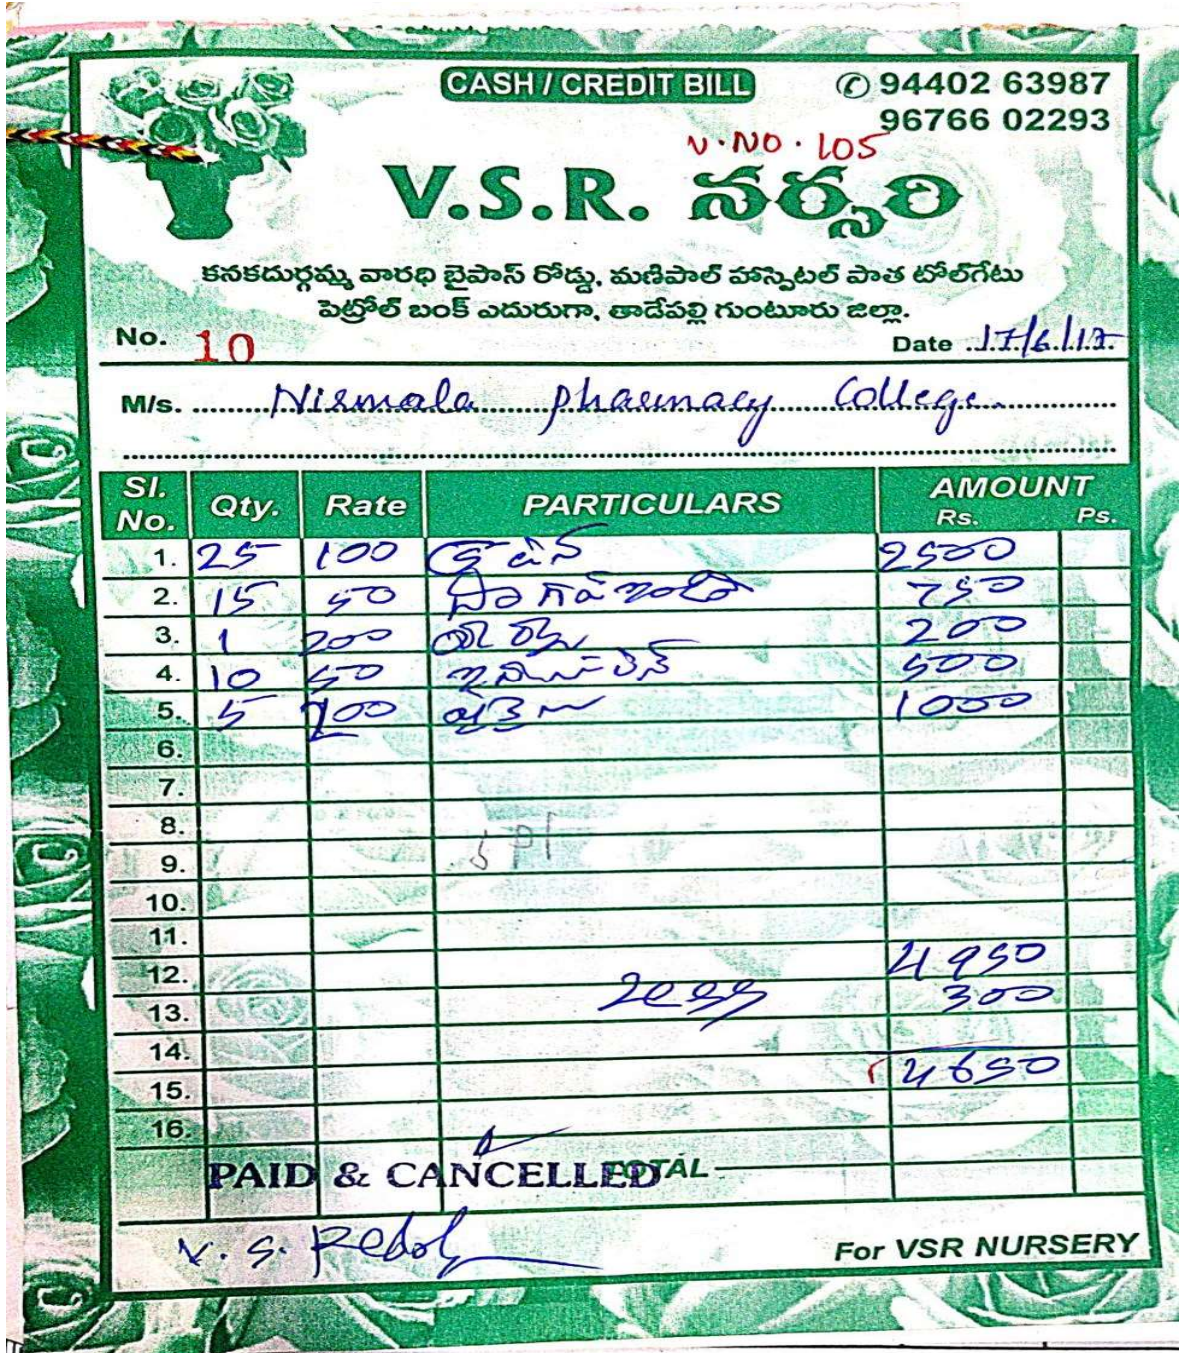 CASH / CREDIT BILL
✆ 94402 63987
96766 02293
V.NO.105
V.S.R. నర్సరి
కనకదుర్గమ్మ వారధి బైపాస్ రోడ్డు, మణిపాల్ హాస్పెటల్ పాత టోల్‌గేటు
పెట్రోల్ బంక్ ఎదురుగా, తాడేపల్లి గుంటూరు జిల్లా.
No. 10 Date 17/6/17.
M/s. Nirmala pharmacy College.
Sl. No. Qty. Rate PARTICULARS AMOUNT Rs. Ps.
1. 25 100 2500
2. 15 50 750
3. 1 200 200
4. 10 50 500
5. 5 200 1000
6.
7.
8.
9.
10.
11.
12. 4950
13. Less 300
14.
15. 4650
16.
PAID & CANCELLED TOTAL
V. S. Reddy
For VSR NURSERY